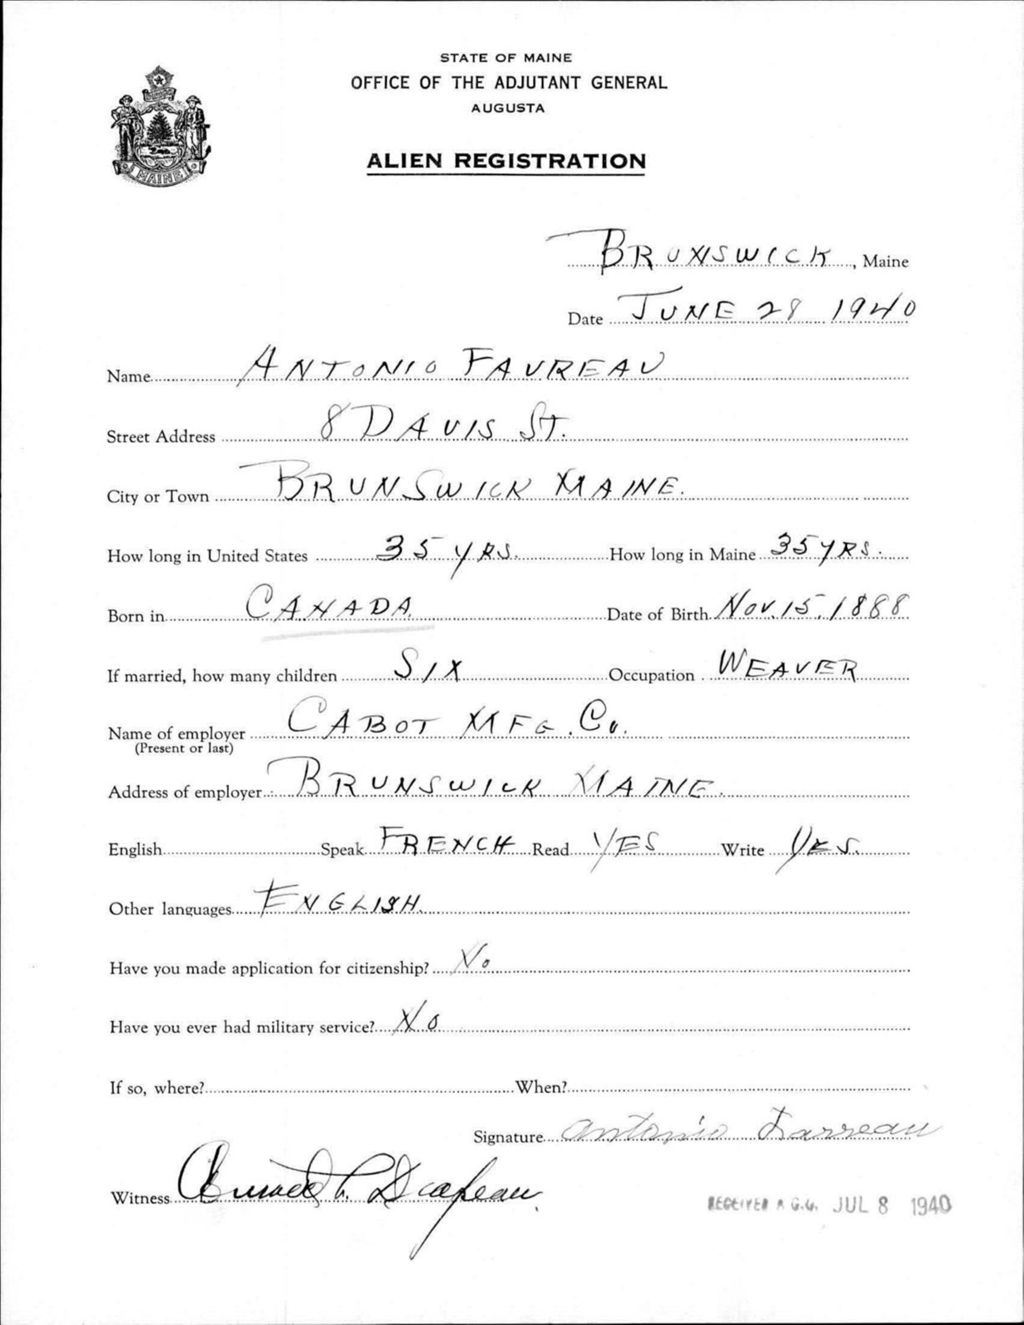 STATE OF MAINE
OFFICE OF THE ADJUTANT GENERAL
AUGUSTA
ALIEN REGISTRATION
MAINE
BRUNSWICK, Maine
Date JUNE 28 1940
Name ANTONIO FAVREAU
Street Address 8 DAVIS ST.
City or Town BRUNSWICK MAINE.
How long in United States 35 YRS. How long in Maine 35 YRS.
Born in CANADA Date of Birth Nov. 15, 1888
If married, how many children SIX Occupation WEAVER
Name of employer CABOT MFG. Co.
(Present or last)
Address of employer BRUNSWICK MAINE.
English Speak FRENCH Read YES Write YES.
Other languages ENGLISH.
Have you made application for citizenship? No
Have you ever had military service? No
If so, where? When?
Signature Antonio
Witness
RECEIVED A.G.O. JUL 8 1940